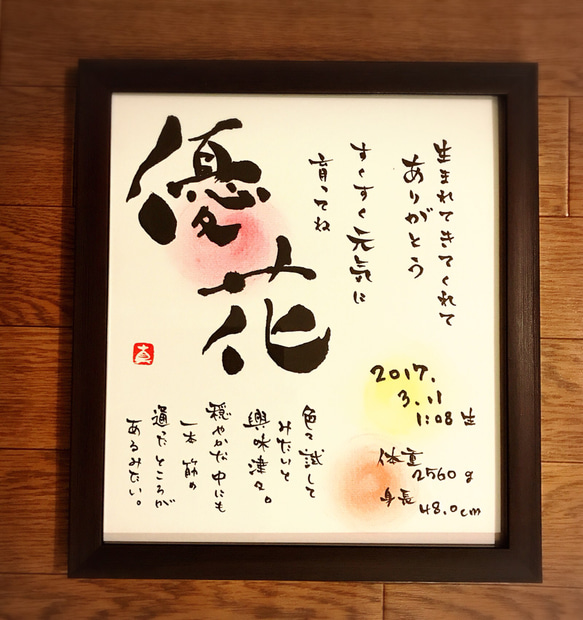 生まれてきてくれて
ありがとう
すくすく元気に
育ってね
優花
真
2017.
3.11
1:08生
体重
2560g
身長
48.0cm
色々試して
みたいと
興味津々。
穏やかな中にも
一本筋の
通ったところが
あるみたい。